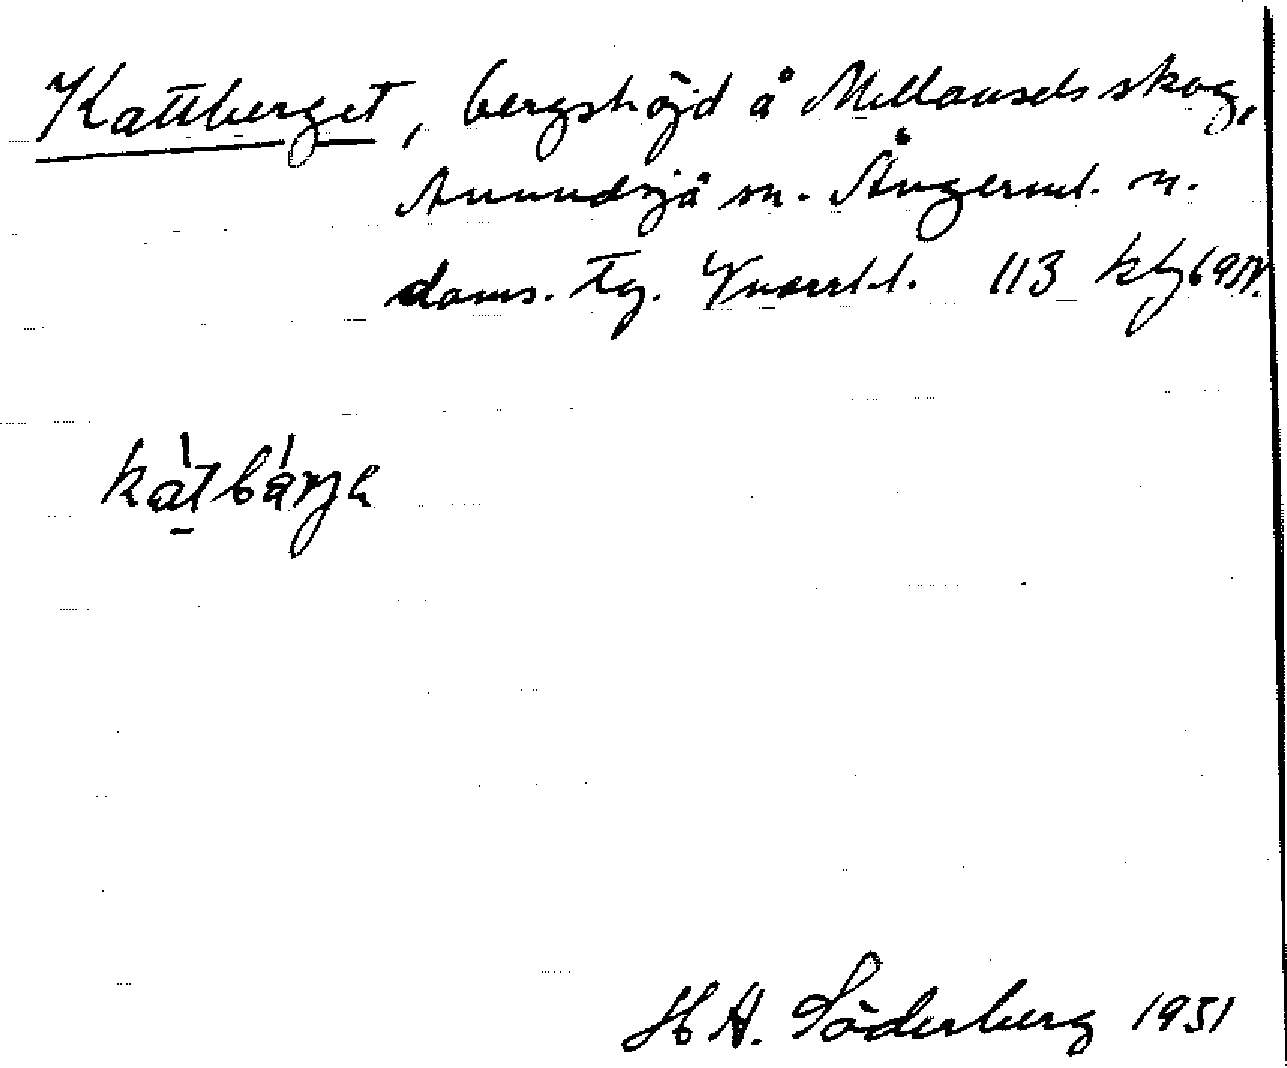 Kattberget, bergshöjd å Mellansels skog,
Anundsjö sn. Ångerml. n.
doms. tg. Västerl. l. 113
kàtbárjh
H A. Söderberg 1951